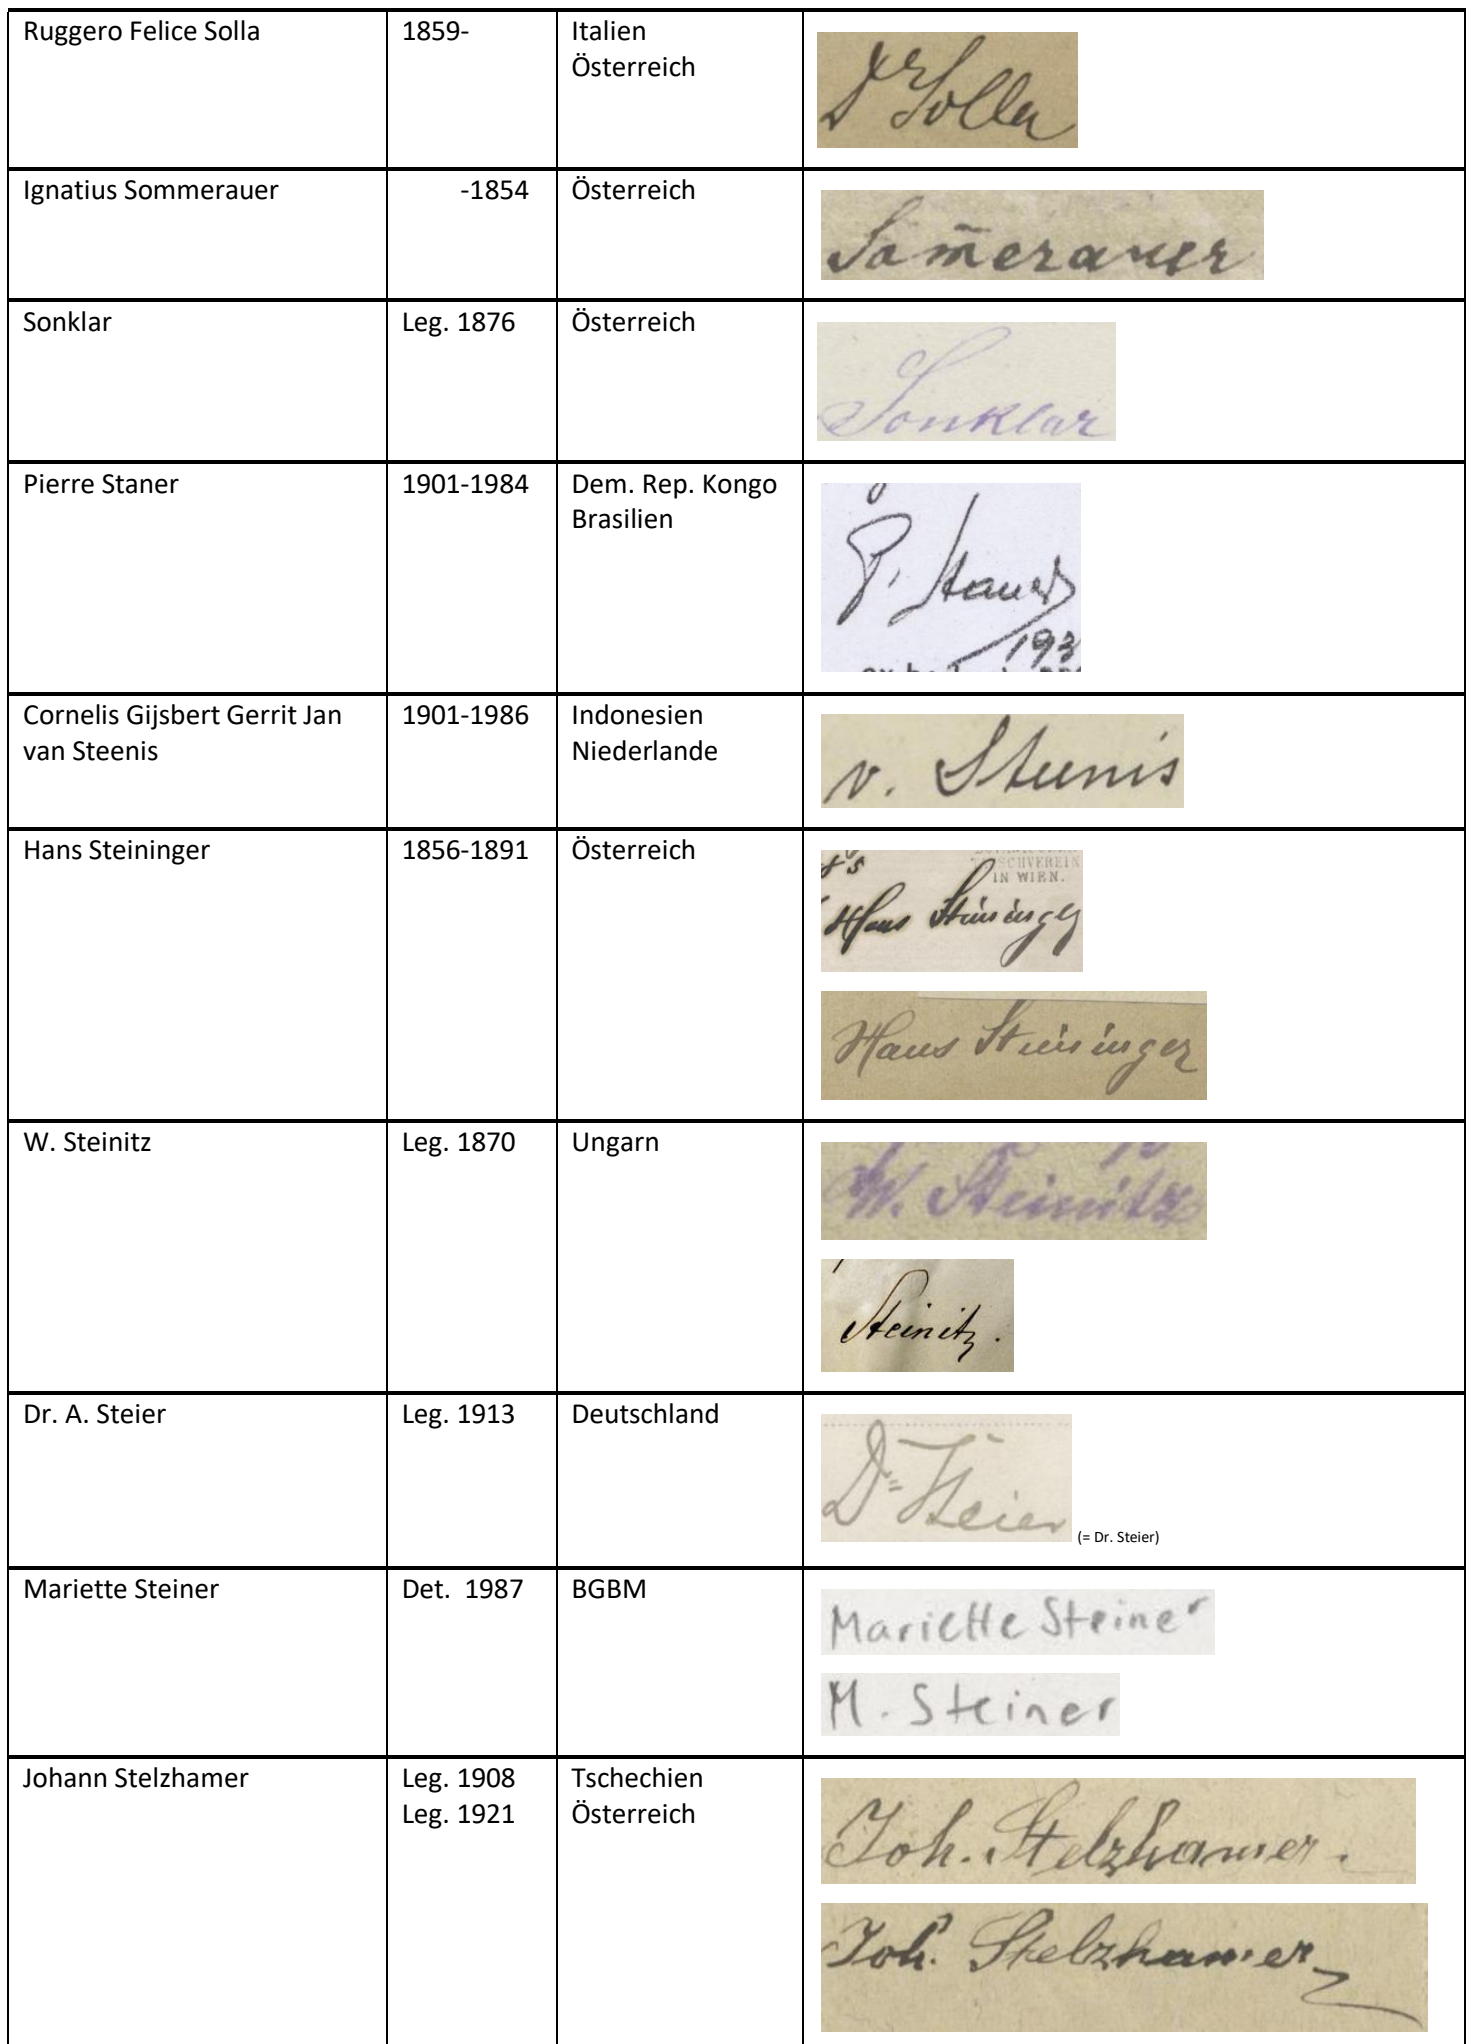 Ruggero Felice Solla 1859- Italien
Österreich
Dr Solla
Ignatius Sommerauer -1854 Österreich
Som̄erauer
Sonklar Leg. 1876 Österreich
Sonklar
Pierre Staner 1901-1984 Dem. Rep. Kongo
Brasilien
P. Staner
193
Cornelis Gijsbert Gerrit Jan 1901-1986 Indonesien
van Steenis Niederlande
v. Steenis
Hans Steininger 1856-1891 Österreich
TAUSCHVEREIN
IN WIEN.
Hans Steininger
Hans Steininger
W. Steinitz Leg. 1870 Ungarn
W. Steinitz
Steinitz.
Dr. A. Steier Leg. 1913 Deutschland
Dr Steier (= Dr. Steier)
Mariette Steiner Det. 1987 BGBM
Mariette Steiner
M. Steiner
Johann Stelzhamer Leg. 1908 Tschechien
Leg. 1921 Österreich
Joh. Stelzhamer.
Joh. Stelzhamer